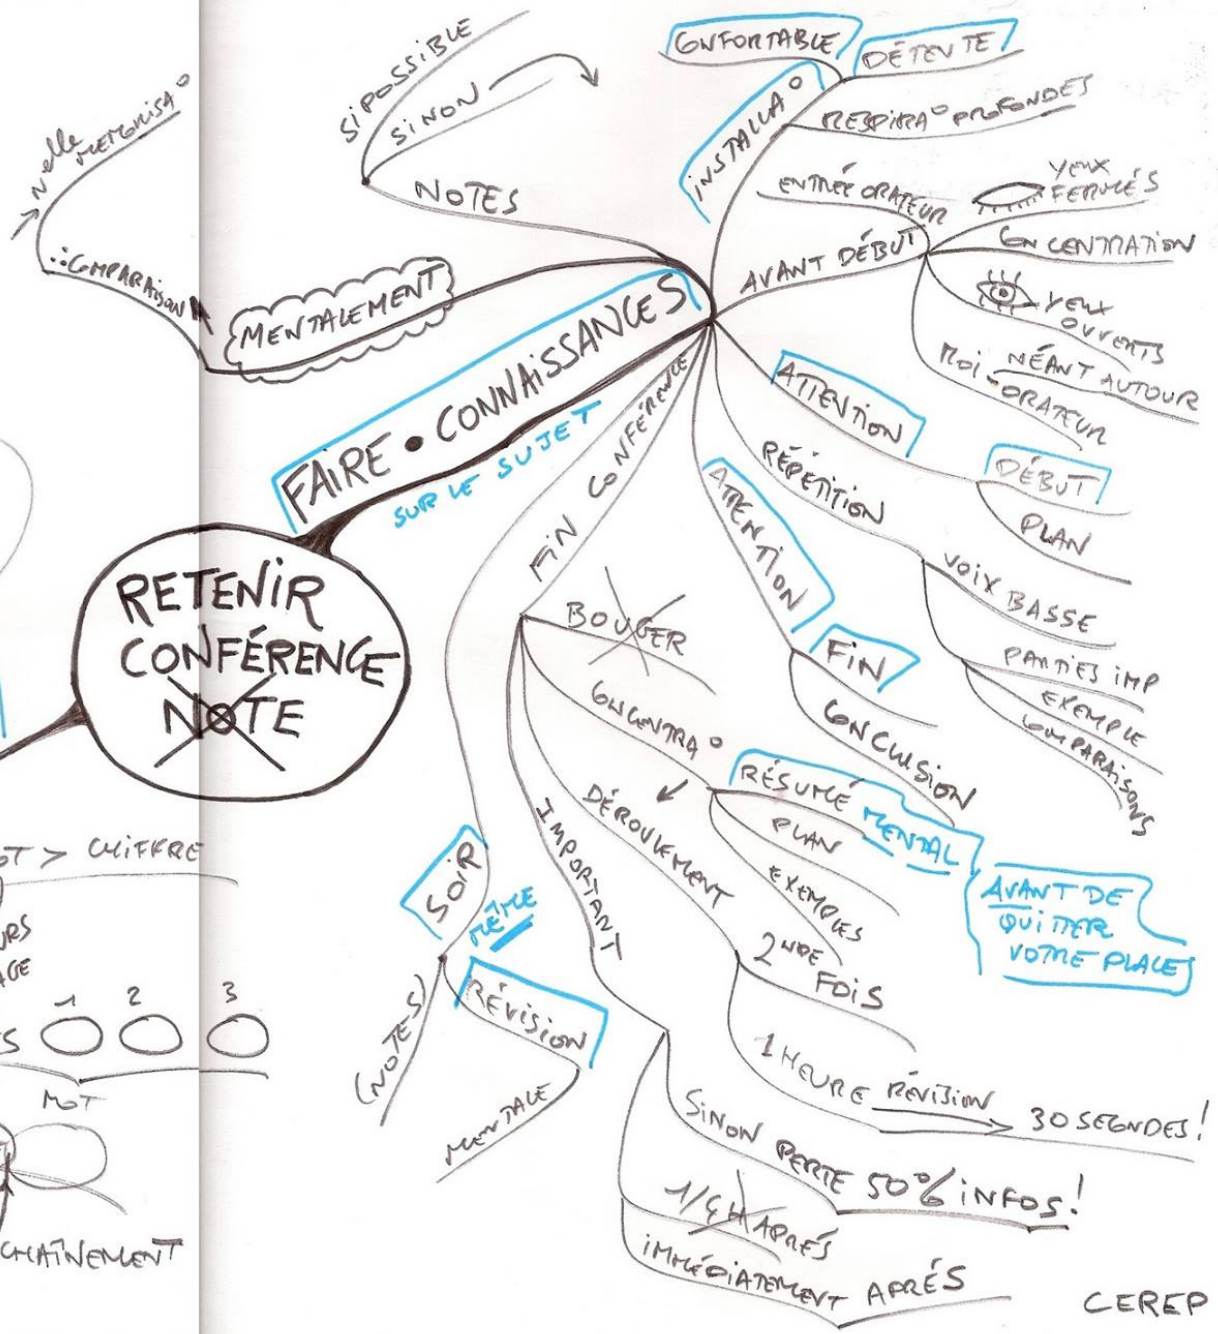 RETENIR
CONFÉRENCE
NOTE
FAIRE • CONNAISSANCES
SUR LE SUJET
MENTALEMENT
COMPARAISON
Nelle
MÉMORISA°
NOTES
SI POSSIBLE
SINON
INSTALLA°
CONFORTABLE
DÉTENTE
RESPIRA° PROFONDES
AVANT DÉBUT
ENTRÉE ORATEUR
YEUX
FERMÉS
CONCENTRATION
YEUX
OUVERTS
NÉANT AUTOUR
MOI - ORATEUR
ATTENTION
DÉBUT
PLAN
RÉPÉTITION
VOIX BASSE
PARTIES IMP
EXEMPLE
COMPARAISONS
ATTENTION
FIN
CONCLUSION
FIN CONFÉRENCE
BOUGER
CONCENTRA°
RÉSUMÉ MENTAL
AVANT DE
QUITTER
VOTRE PLACE
PLAN
EXEMPLES
DÉROULEMENT
2NDE
FOIS
1 HEURE RÉVISION 30 SECONDES!
IMPORTANT
SINON PERTE 50% INFOS!
1/4 H APRÉS
IMMÉDIATEMENT APRÉS
SOIR
MÊME
RÉVISION
MENTALE
(NOTES)
OT > CHIFFRE
URS
AGE
S 1 2 3
MOT
CHAÎNEMENT
CEREP